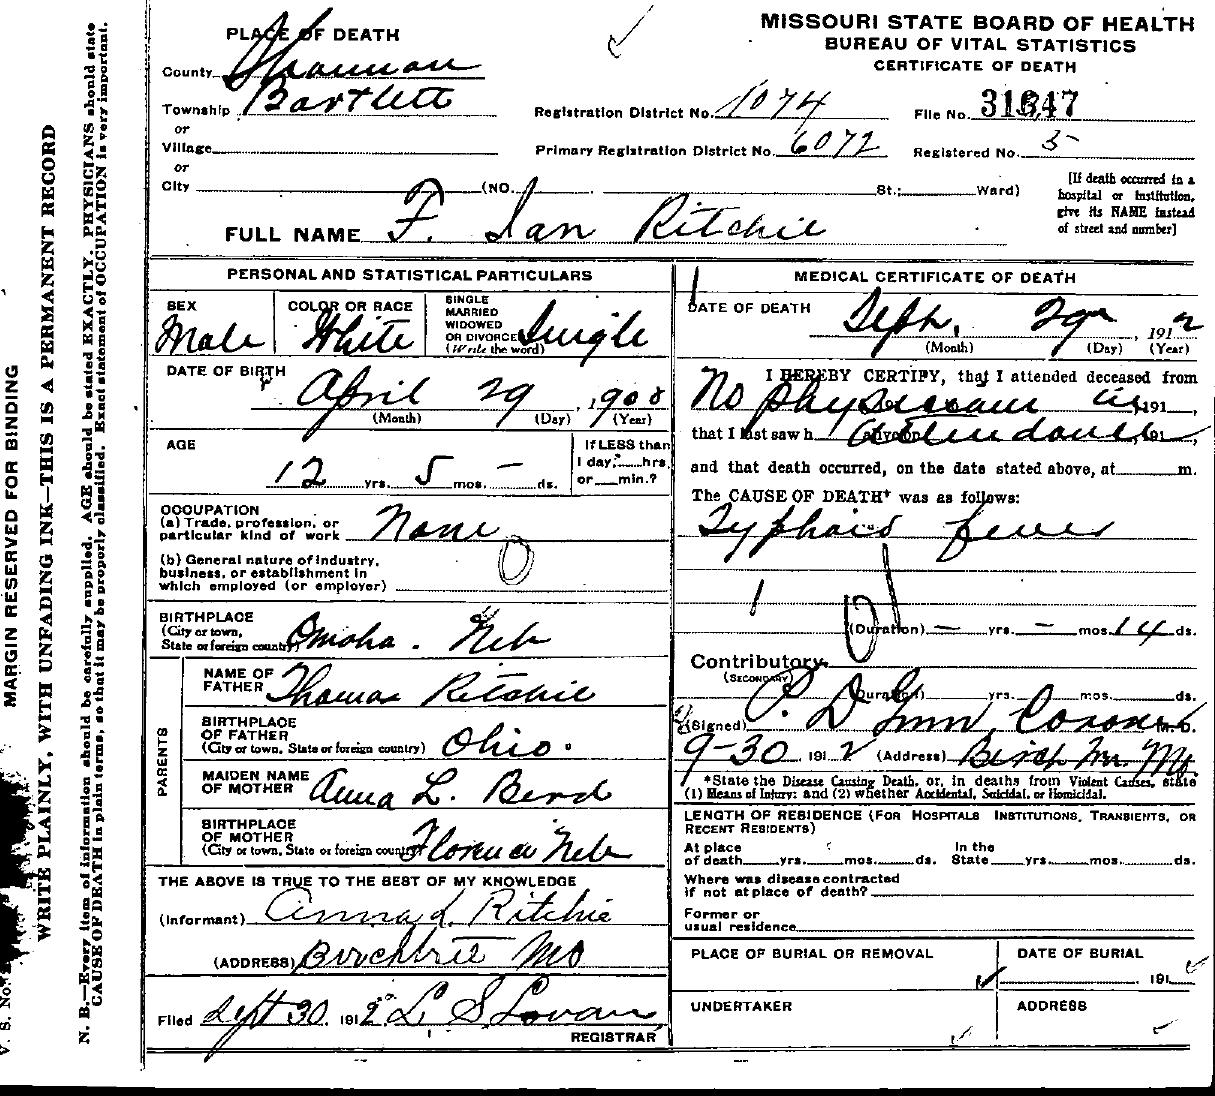 MISSOURI STATE BOARD OF HEALTH
BUREAU OF VITAL STATISTICS
CERTIFICATE OF DEATH
PLACE OF DEATH
County Shannon
Township Bartlett
or
Village
or
City (NO. St.; Ward)
Registration District No. 1074
File No. 31647
Primary Registration District No. 6072
Registered No. 5
[If death occurred in a
hospital or institution,
give its NAME instead
of street and number]
FULL NAME F. Ian Ritchie
PERSONAL AND STATISTICAL PARTICULARS
SEX
Male
COLOR OR RACE
White
SINGLE
MARRIED
WIDOWED
OR DIVORCED
(Write the word)
Single
DATE OF BIRTH
April 29, 1900
(Month) (Day) (Year)
AGE
12 yrs. 5 mos. — ds.
If LESS than
1 day, hrs.
or min.?
OCCUPATION
(a) Trade, profession, or
particular kind of work None
(b) General nature of industry,
business, or establishment in
which employed (or employer)
BIRTHPLACE
(City or town,
State or foreign country) Omaha. Neb
PARENTS
NAME OF
FATHER Thomas Ritchie
BIRTHPLACE
OF FATHER
(City or town, State or foreign country) Ohio.
MAIDEN NAME
OF MOTHER Anna L. Berd
BIRTHPLACE
OF MOTHER
(City or town, State or foreign country) Florence Neb
THE ABOVE IS TRUE TO THE BEST OF MY KNOWLEDGE
(Informant) Anna L Ritchie
(ADDRESS) Birchtree Mo
Filed Sept 30 1912 L S Lovan
REGISTRAR
MEDICAL CERTIFICATE OF DEATH
DATE OF DEATH
Seph. 29, 1912
(Month) (Day) (Year)
I HEREBY CERTIFY, that I attended deceased from
No physician in 191
that I last saw h alive on attendance 191
and that death occurred, on the date stated above, at m.
The CAUSE OF DEATH* was as follows:
Typhoid fever
(Duration) — yrs. — mos. 14 ds.
Contributory
(SECONDARY)
(Duration) yrs. mos. ds.
(Signed) P. D Gum Coroner M.D.
9-30 1912 (Address) Birch Mo.
*State the Disease Causing Death, or, in deaths from Violent Causes, state
(1) Means of Injury; and (2) whether Accidental, Suicidal, or Homicidal.
LENGTH OF RESIDENCE (FOR HOSPITALS INSTITUTIONS, TRANSIENTS, OR
RECENT RESIDENTS)
At place of death yrs. mos. ds. In the State yrs. mos. ds.
Where was disease contracted
if not at place of death?
Former or
usual residence
PLACE OF BURIAL OR REMOVAL
DATE OF BURIAL
191
UNDERTAKER
ADDRESS
MARGIN RESERVED FOR BINDING
WRITE PLAINLY, WITH UNFADING INK—THIS IS A PERMANENT RECORD
N. B.—Every item of information should be carefully supplied. AGE should be stated EXACTLY. PHYSICIANS should state
CAUSE OF DEATH in plain terms, so that it may be properly classified. Exact statement of OCCUPATION is very important.
V. S. No.